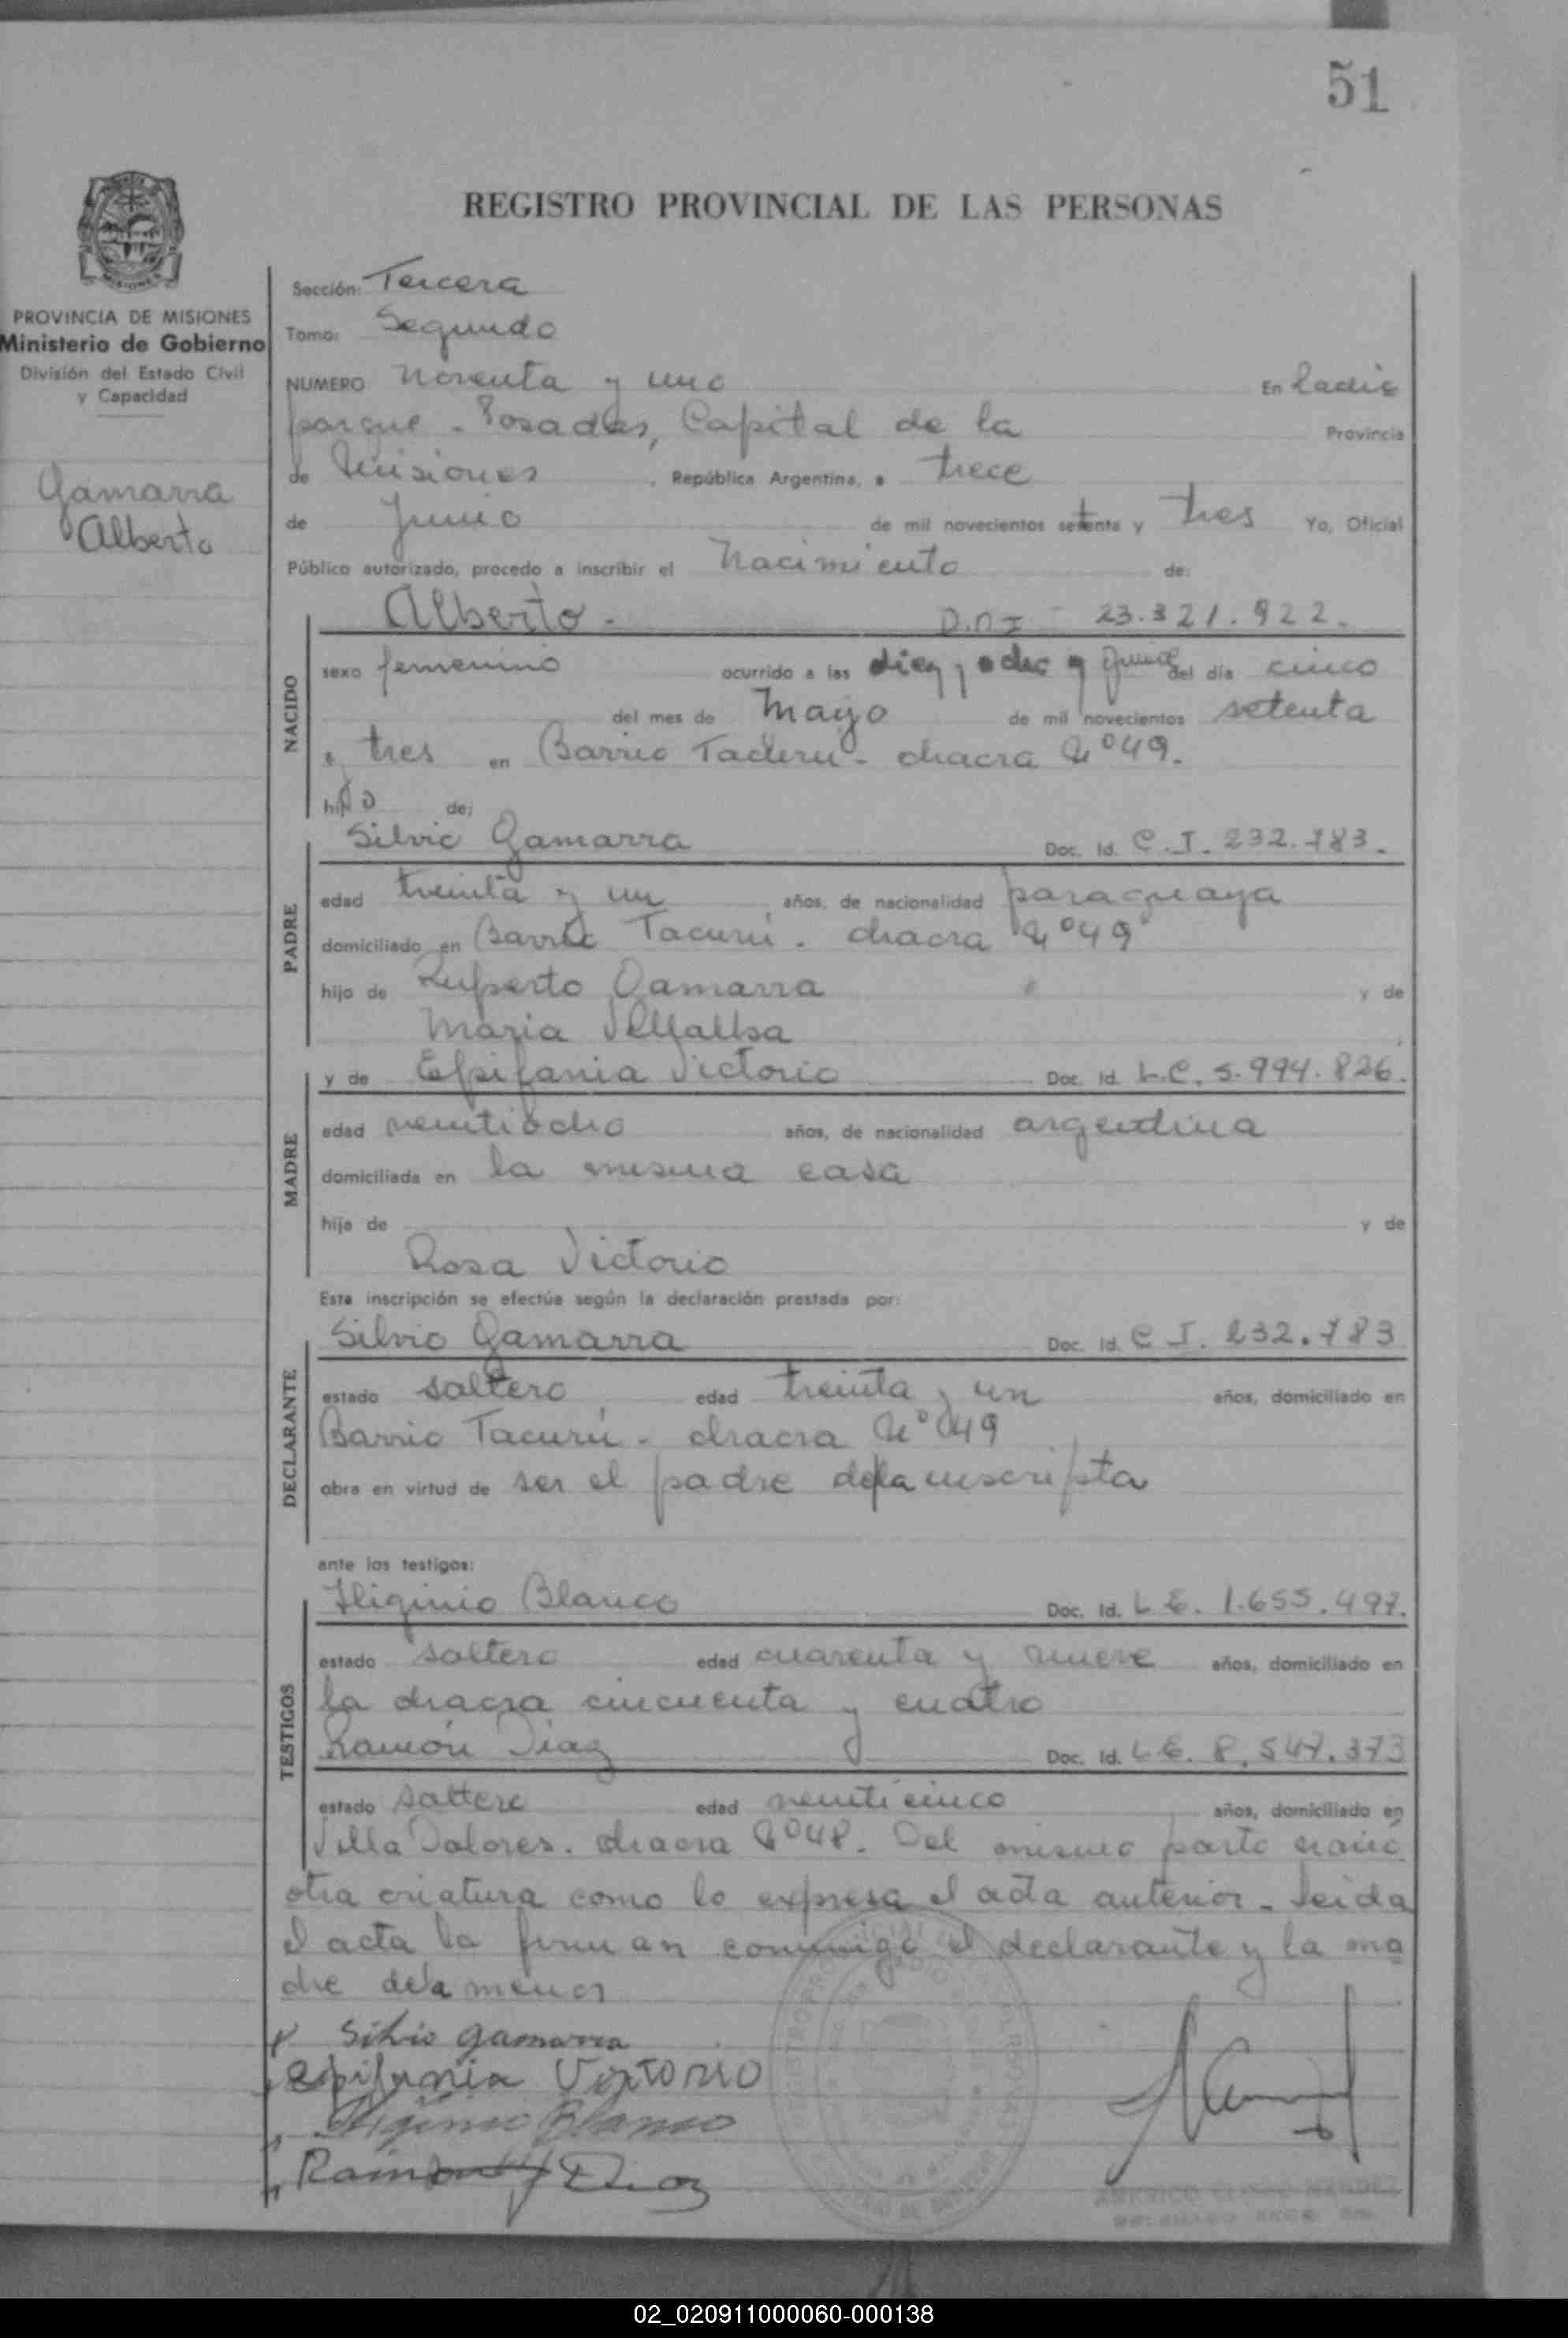 51
REGISTRO PROVINCIAL DE LAS PERSONAS
PROVINCIA DE MISIONES
Ministerio de Gobierno
División del Estado Civil
y Capacidad
Gamarra
Alberto
Sección: Tercera
Tomo: Segundo
NUMERO noventa y uno En Radio
parque - Posadas, Capital de la Provincia
de Misiones, República Argentina, a trece
de Junio de mil novecientos setenta y tres Yo, Oficial
Público autorizado, procedo a inscribir el nacimiento de:
Alberto - D.N.I - 23.321.922.
NACIDO
sexo femenino ocurrido a las diez y ocho y del día cinco
del mes de Mayo de mil novecientos setenta
y tres en Barrio Tacuru - chacra Nº 49.
hijo de:
Silvio Gamarra Doc. Id. C.I. 232.783.
PADRE
edad treinta y un años, de nacionalidad paraguaya
domiciliado en Barrio Tacurú. chacra Nº 49
hijo de Ruperto Gamarra y de
Maria Villalba
y de Epifania Victorio Doc. Id. L.C. 5.994.826.
MADRE
edad veintiocho años, de nacionalidad argentina
domiciliada en la misma casa
hija de y de
Rosa Victorio
Esta inscripción se efectúa según la declaración prestada por:
Silvio Gamarra Doc. Id. C I. 232.783
DECLARANTE
estado soltero, edad treinta y un años, domiciliado en
Barrio Tacurú - chacra Nº 49
obra en virtud de ser el padre de la inscripta
ante los testigos:
Higinio Blanco Doc. Id. L E. 1.655.497.
TESTIGOS
estado soltero edad cuarenta y nueve años, domiciliado en
la chacra cincuenta y cuatro
Ramón Diaz Doc. Id. L E. 8.547.373
estado soltero edad veinticinco años, domiciliado en
Villa Dolores. chacra Nº 48. Del mismo parto nació
otra criatura como lo expresa el acta anterior - Leida
el acta la firman conmigo el declarante y la ma
dre de la menor
Silvio gamarra
Epifania Victorio
Higinio Blanco
Ramon Diaz
02_020911000060-000138